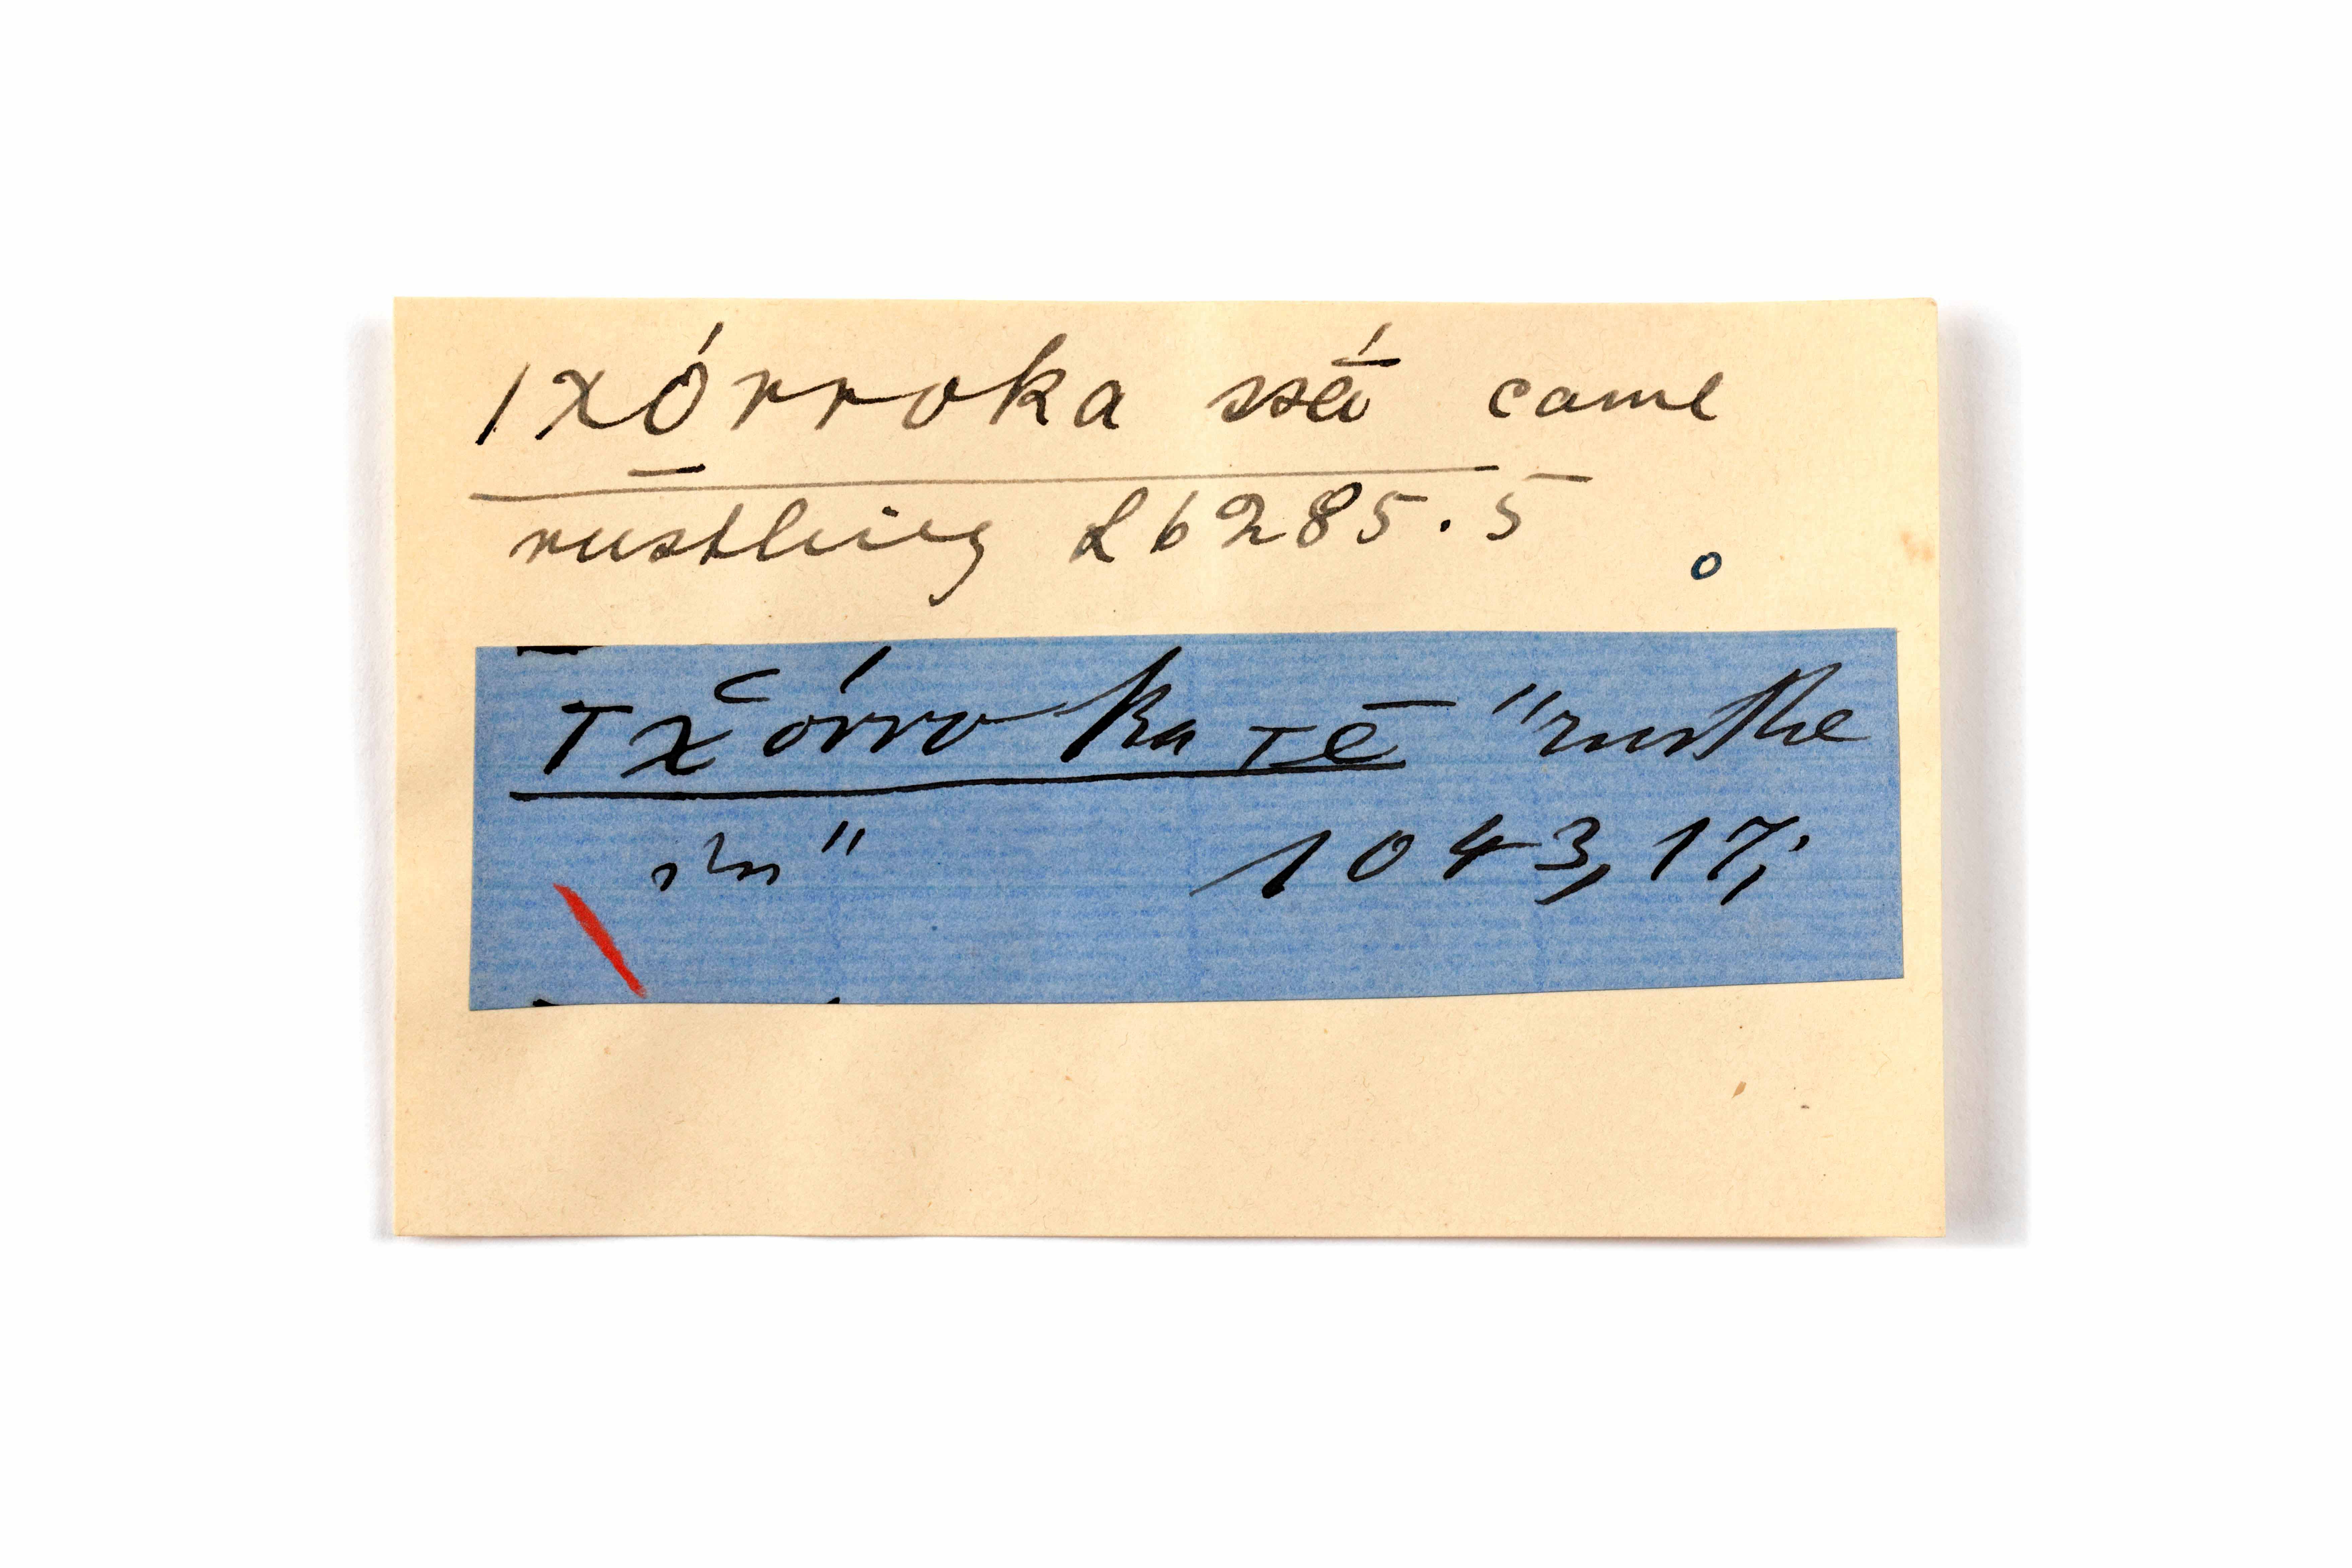 |xórroka ssē̒ came
rustling L6285.5
o
Tχ̆órroka tē "rustle
in" 1043,17;